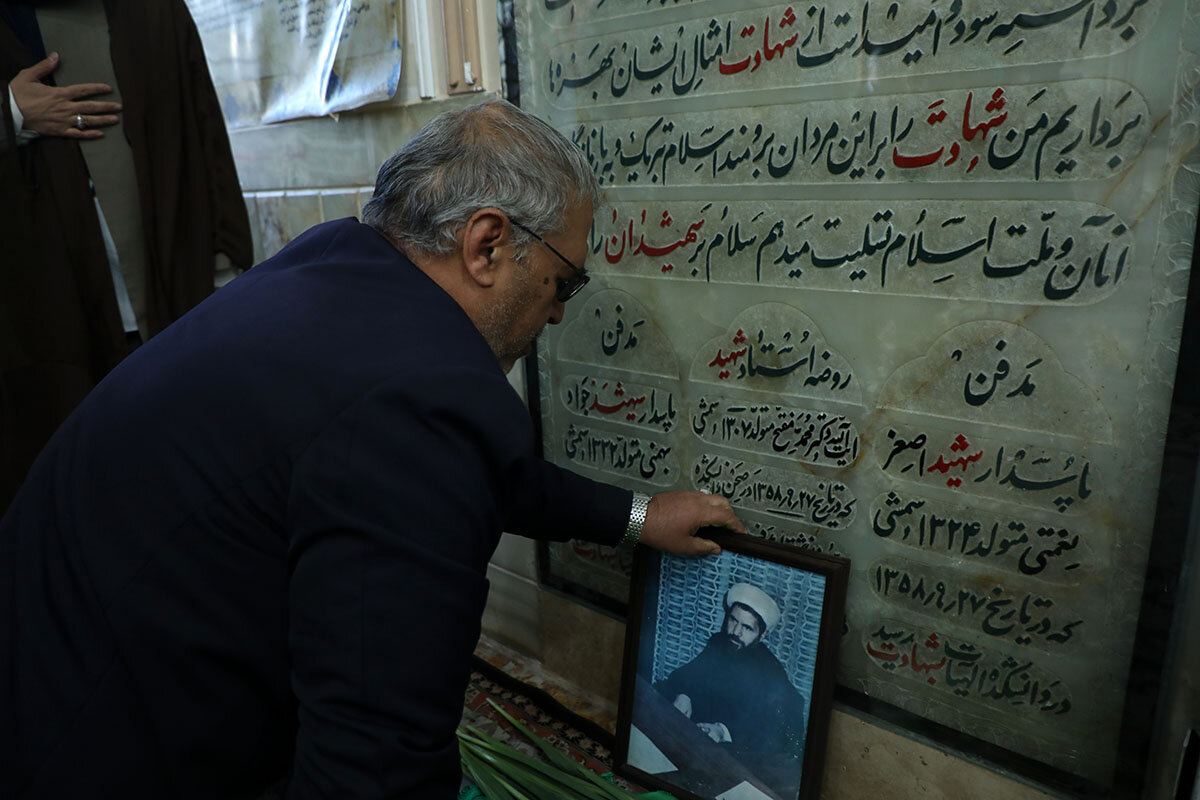 سود و امیداست از شهادت امثال ایشان بهره ها
برداریم من شهادت را بر این مردان برومند اسلام تبریک و به
آنان و ملت اسلام تسلیت میدهم سلام بر شهیدان
مدفن
پاسدار شهید اصغر
نعمتی متولد ۱۳۲۴ شمسی
که در تاریخ ۱۳۵۸/۹/۲۷
در دانشکده الهیات بشهادت رسید
روضه استاد شهید
آیت الله دکتر محمد مفتح متولد ۱۳۰۷ شمسی
که در تاریخ ۱۳۵۸/۹/۲۷ در صحن دانشکده
مدفن
پاسدار شهید جواد
بهمنی متولد ۱۳۳۲ شمسی